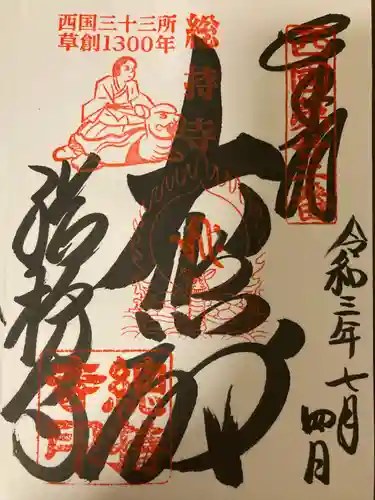 奉拝
西国第廿二番
令和三年七月四日
総持寺
西国三十三所
草創1300年
大悲殿
総持寺
総持寺印